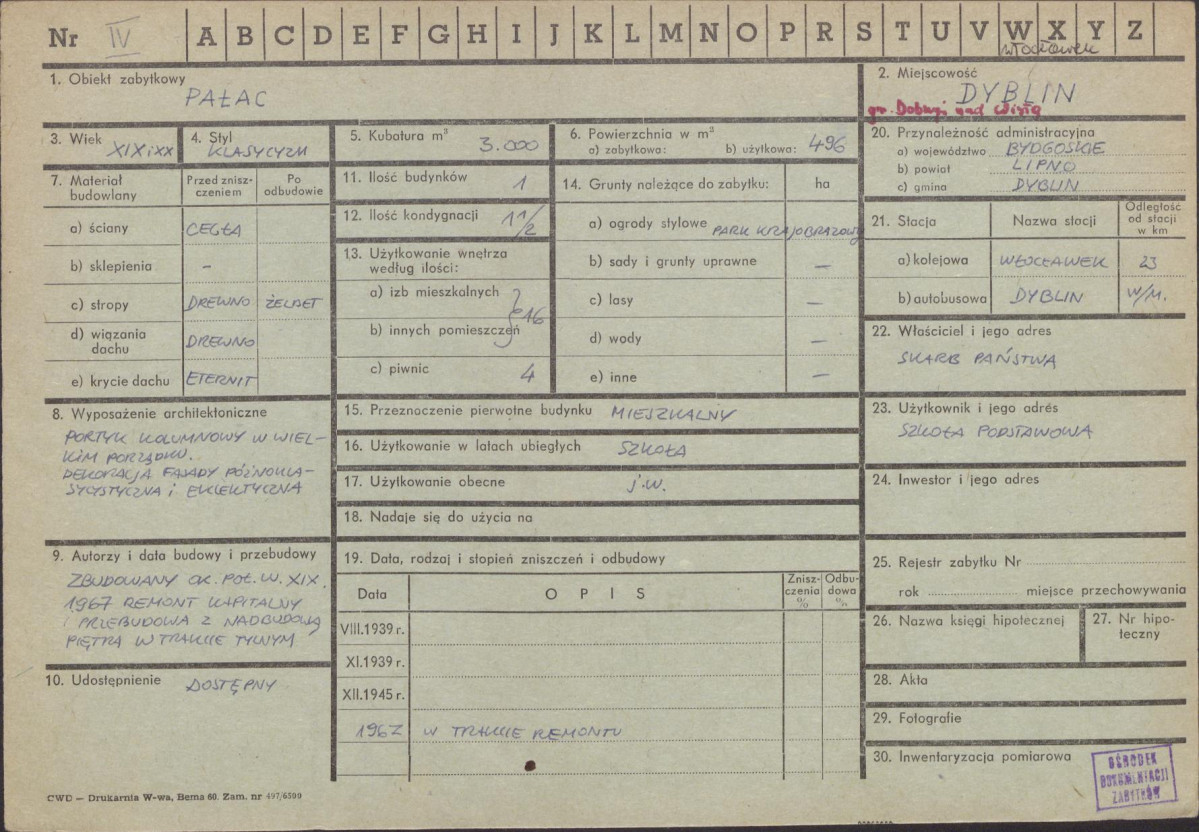 Nr IV A B C D E F G H I J K L M N O P R S T U V W X Y Z
Włocławek
1. Obiekt zabytkowy
PAŁAC
2. Miejscowość
DYBLIN
gm. Dobrzyń nad Wisłą
3. Wiek
XIX i XX
4. Styl
KLASYCYZM
5. Kubatura m³
3.000
6. Powierzchnia w m²
a) zabytkowa: b) użytkowa: 496
20. Przynależność administracyjna
a) województwo BYDGOSKIE
b) powiat LIPNO
c) gmina DYBLIN
7. Materiał budowlany
Przed zniszczeniem
Po odbudowie
a) ściany CEGŁA
b) sklepienia –
c) stropy DREWNO ŻELBET
d) wiązania dachu DREWNO
e) krycie dachu ETERNIT
11. Ilość budynków 1
12. Ilość kondygnacji 1 1/2
13. Użytkowanie wnętrza
według ilości:
a) izb mieszkalnych
b) innych pomieszczeń } 16
c) piwnic 4
14. Grunty należące do zabytku: ha
a) ogrody stylowe PARK KRAJOBRAZOWY
b) sady i grunty uprawne –
c) lasy –
d) wody –
e) inne –
21. Stacja Nazwa stacji Odległość od stacji w km
a) kolejowa WŁOCŁAWEK 23
b) autobusowa DYBLIN W/M.
22. Właściciel i jego adres
SKARB PAŃSTWA
8. Wyposażenie architektoniczne
PORTYK KOLUMNOWY W WIEL-
KIM PORZĄDKU.
DEKORACJA FASADY PÓŹNOKLA-
SYCYSTYCZNA i EKLEKTYCZNA
15. Przeznaczenie pierwotne budynku MIESZKALNY
16. Użytkowanie w latach ubiegłych SZKOŁA
17. Użytkowanie obecne j.w.
18. Nadaje się do użycia na
23. Użytkownik i jego adres
SZKOŁA PODSTAWOWA
24. Inwestor i jego adres
9. Autorzy i data budowy i przebudowy
ZBUDOWANY OK. POŁ. W. XIX.
1967 REMONT KAPITALNY
i PRZEBUDOWA Z NADBUDOWĄ
PIĘTRA W TRAKCIE TYLNYM
10. Udostępnienie DOSTĘPNY
19. Data, rodzaj i stopień zniszczeń i odbudowy
Data OPIS Zniszczenia % Odbudowa %
VIII.1939 r.
XI.1939 r.
XII.1945 r.
1967 W TRAKCIE REMONTU
25. Rejestr zabytku Nr
rok miejsce przechowywania
26. Nazwa księgi hipotecznej
27. Nr hipoteczny
28. Akta
29. Fotografie
30. Inwentaryzacja pomiarowa
OŚRODEK
DOKUMENTACJI
ZABYTKÓW
CWD — Drukarnia W-wa, Bema 60. Zam. nr 497/6500